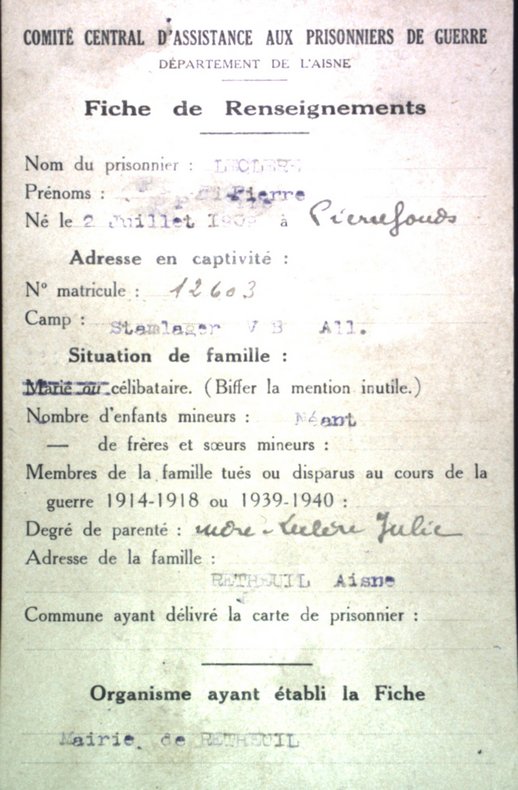 COMITÉ CENTRAL D'ASSISTANCE AUX PRISONNIERS DE GUERRE
DÉPARTEMENT DE L'AISNE
Fiche de Renseignements
Nom du prisonnier : LECLERE
Prénoms : Pierre
Né le 2 Juillet à Pierrefonds
Adresse en captivité :
N° matricule : 12603
Camp : Stamlager V B All.
Situation de famille :
Marié ou célibataire. (Biffer la mention inutile.)
Nombre d'enfants mineurs : Néant
— de frères et sœurs mineurs :
Membres de la famille tués ou disparus au cours de la
guerre 1914-1918 ou 1939-1940 :
Degré de parenté : mère - Leclère Julie
Adresse de la famille :
RETHEUIL Aisne
Commune ayant délivré la carte de prisonnier :
Organisme ayant établi la Fiche
Mairie de RETHEUIL